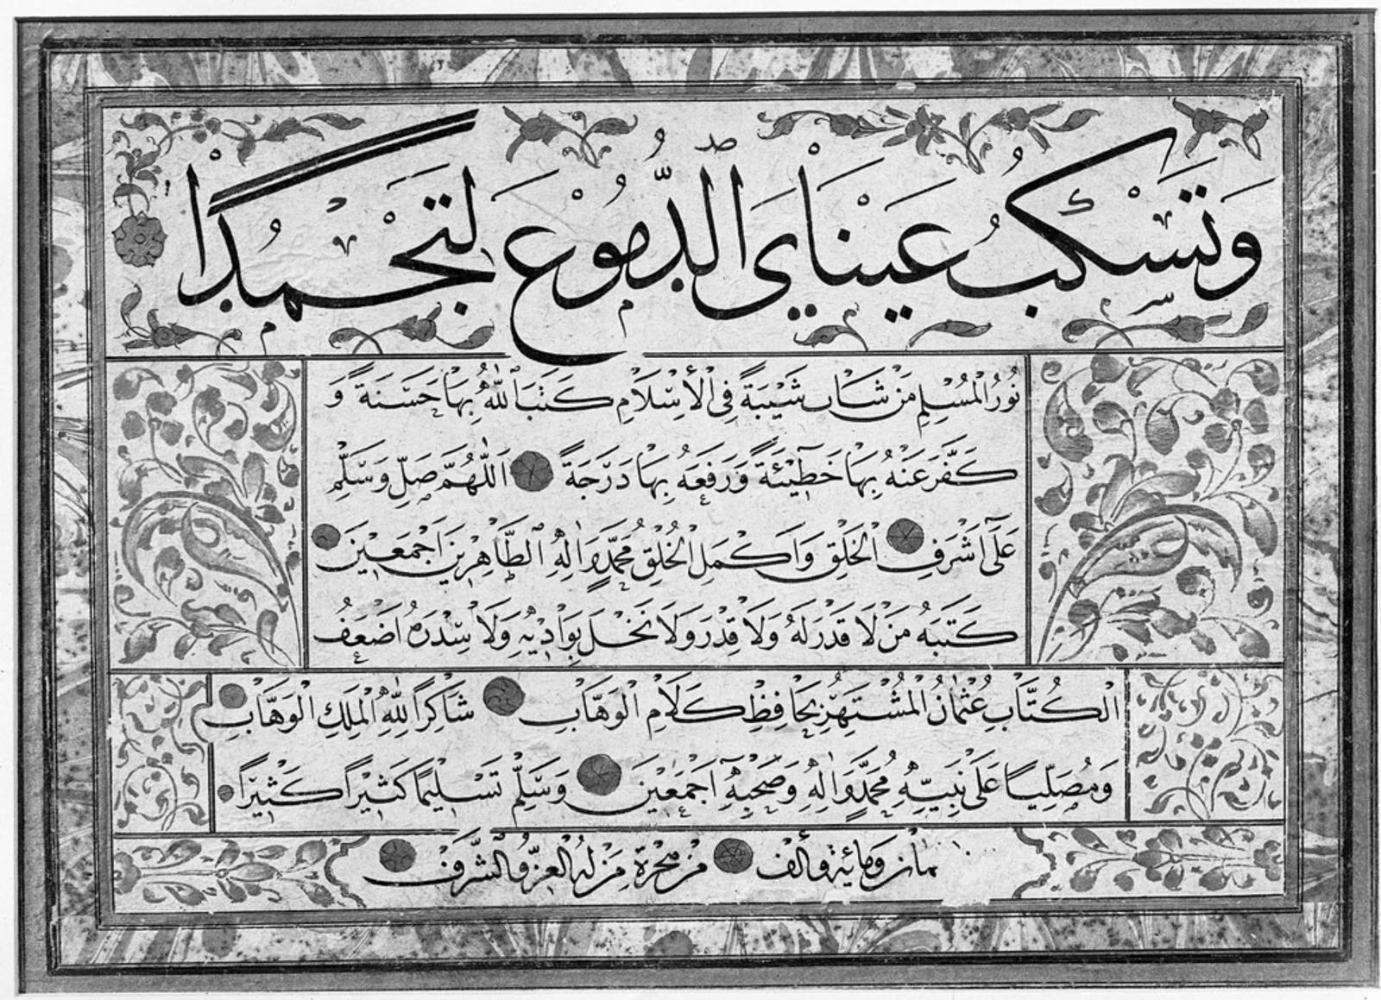 وَتَسْكُبُ عَيْنَايَ الدُّمُوعَ لِتَجْمُدَا
نُورُ الْمُسْلِمِ مَنْ شَابَ شَيْبَةً فِي الْأِسْلَامِ كَتَبَ اللّٰهُ بِهَا حَسَنَةً وَ
كَفَّرَ عَنْهُ بِهَا خَطٓيئَةً وَرَفَعَهُ بِهَا دَرَجَةً اَللّٰهُمَّ صَلِّ وَسَلِّمْ
عَلٓى اَشْرَفِ الْخَلْقِ وَاَكْمَلِ الْخُلْقِ مُحَمَّدٍ وَاٰلِهِ الطَّاهِرِينَ اَجْمَعِينَ
كَتَبَهُ مَنْ لَا قَدْرَ لَهُ وَلَا قِدْرَ وَلَا نَخْلَ بِوَادِيهِ وَلَا سِدْرَ اَضْعَفُ
الْكُتَّابِ عُثْمَانُ الْمُشْتَهِرُ بِحَافِظِ كَلَامِ الْوَهَّابِ شَاكِرًا لِلّٰهِ الْمَلِكِ الْوَهَّابِ
وَمُصَلِّيًا عَلَى نَبِيِّهِ مُحَمَّدٍ وَاٰلِهِ وَصَحْبِهِ اَجْمَعِينَ وَسَلِّمْ تَسْلِيمًا كَثِيرًا كَثِيرًا
ثمان ومائة وألف من هجرة من له العز والشرف